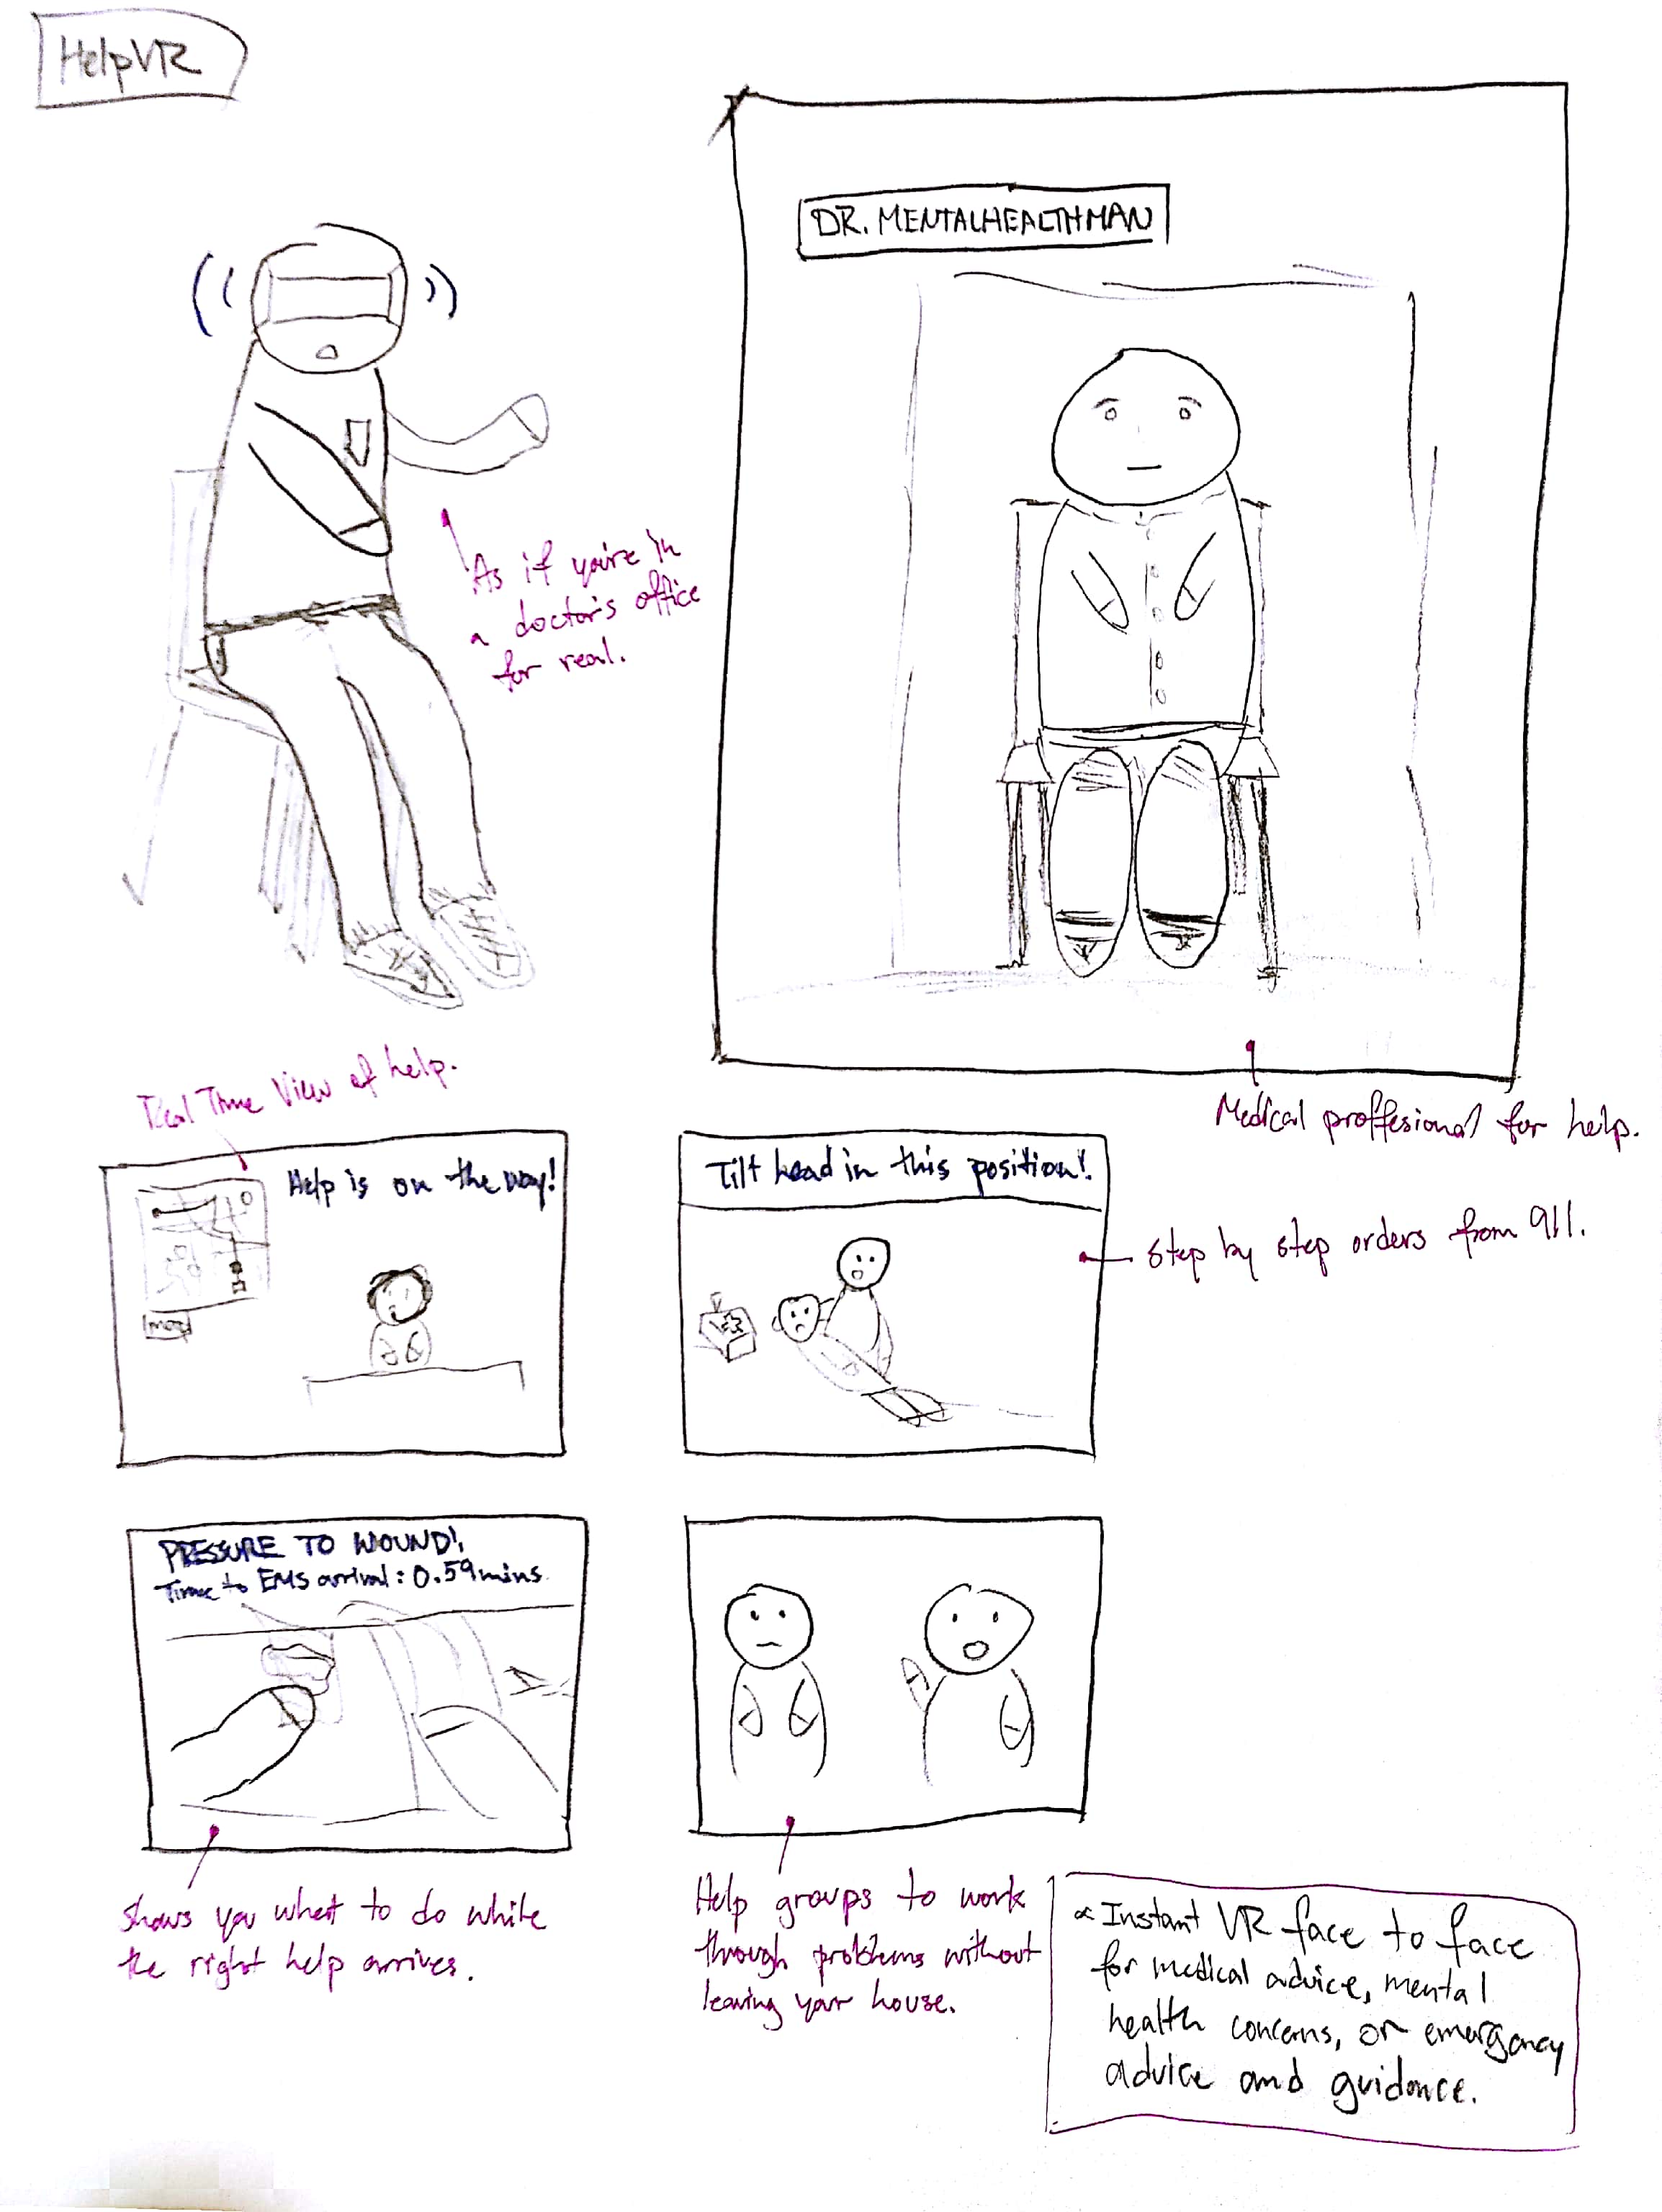 HelpVR
DR. MENTALHEALTHMAN
As if you're in
a doctor's office
for real.
Medical proffesional for help.
Real Time View of help.
Help is on the way!
Tilt head in this position!
Step by step orders from 911.
PRESSURE TO WOUND!
Time to EMS arrival: 0.59mins.
Shows you what to do while
the right help arrives.
Help groups to work
through problems without
leaving your house.
Instant VR face to face
for medical advice, mental
health concerns, or emergency
advice and guidance.